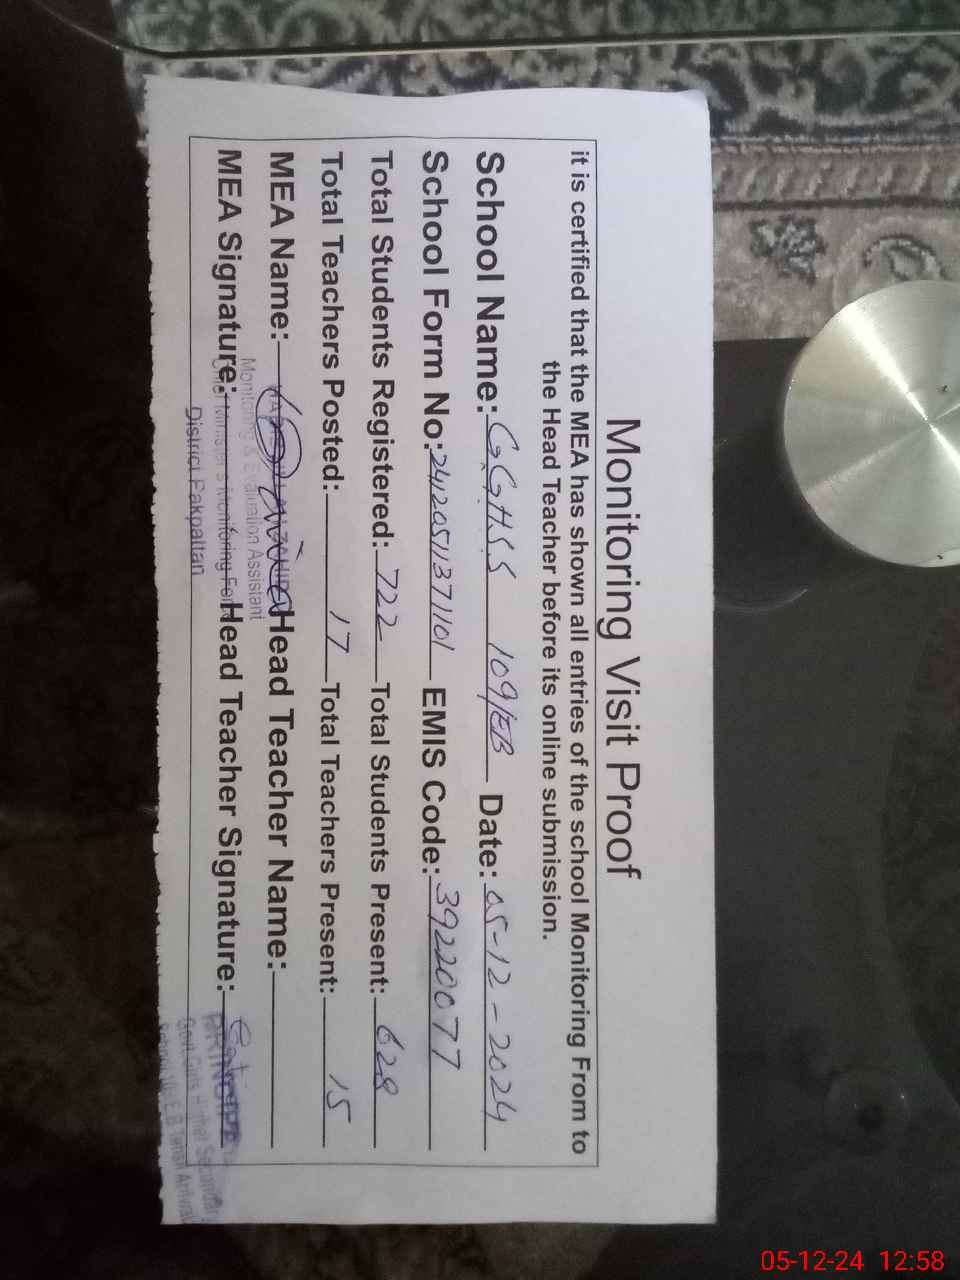 Monitoring Visit Proof
it is certified that the MEA has shown all entries of the school Monitoring From to
the Head Teacher before its online submission.
School Name: G.G.H.S.S 109/EB Date: 05-12-2024
School Form No: 2420511371101 EMIS Code: 39220077
Total Students Registered: 722 Total Students Present: 628
Total Teachers Posted: 17 Total Teachers Present: 15
MEA Name: Head Teacher Name:
Monitoring & Evaluation Assistant
MEA Signature: Head Teacher Signature:
Chief Minister's Monitoring Force
District Pakpattan
PRINCIPAL
Govt. Girls Higher Secondary
05-12-24 12:58